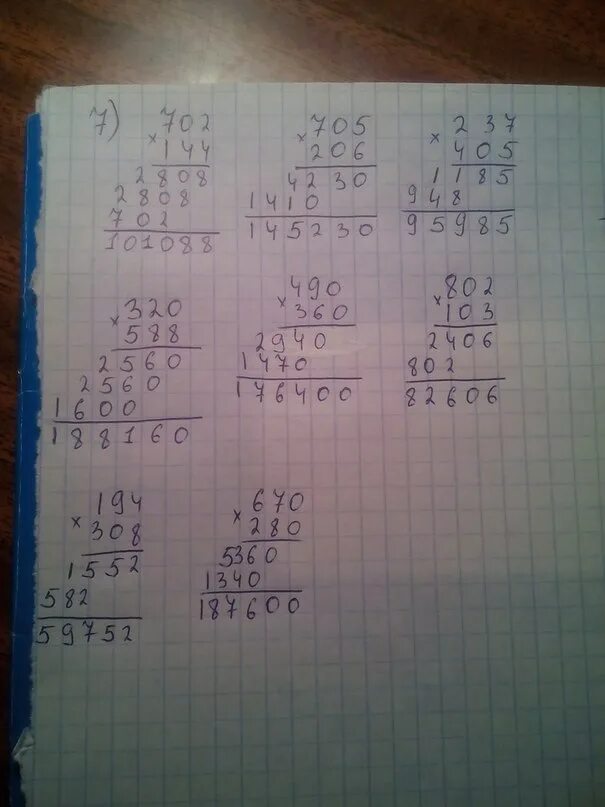 7) 702
× 144
2808
2808
702
101088
× 705
206
4230
1410
145230
× 237
405
1185
948
95985
× 320
588
2560
2560
1600
188160
× 490
360
2940
1470
176400
× 802
103
2406
802
82606
× 194
308
1552
582
59752
× 670
280
5360
1340
187600